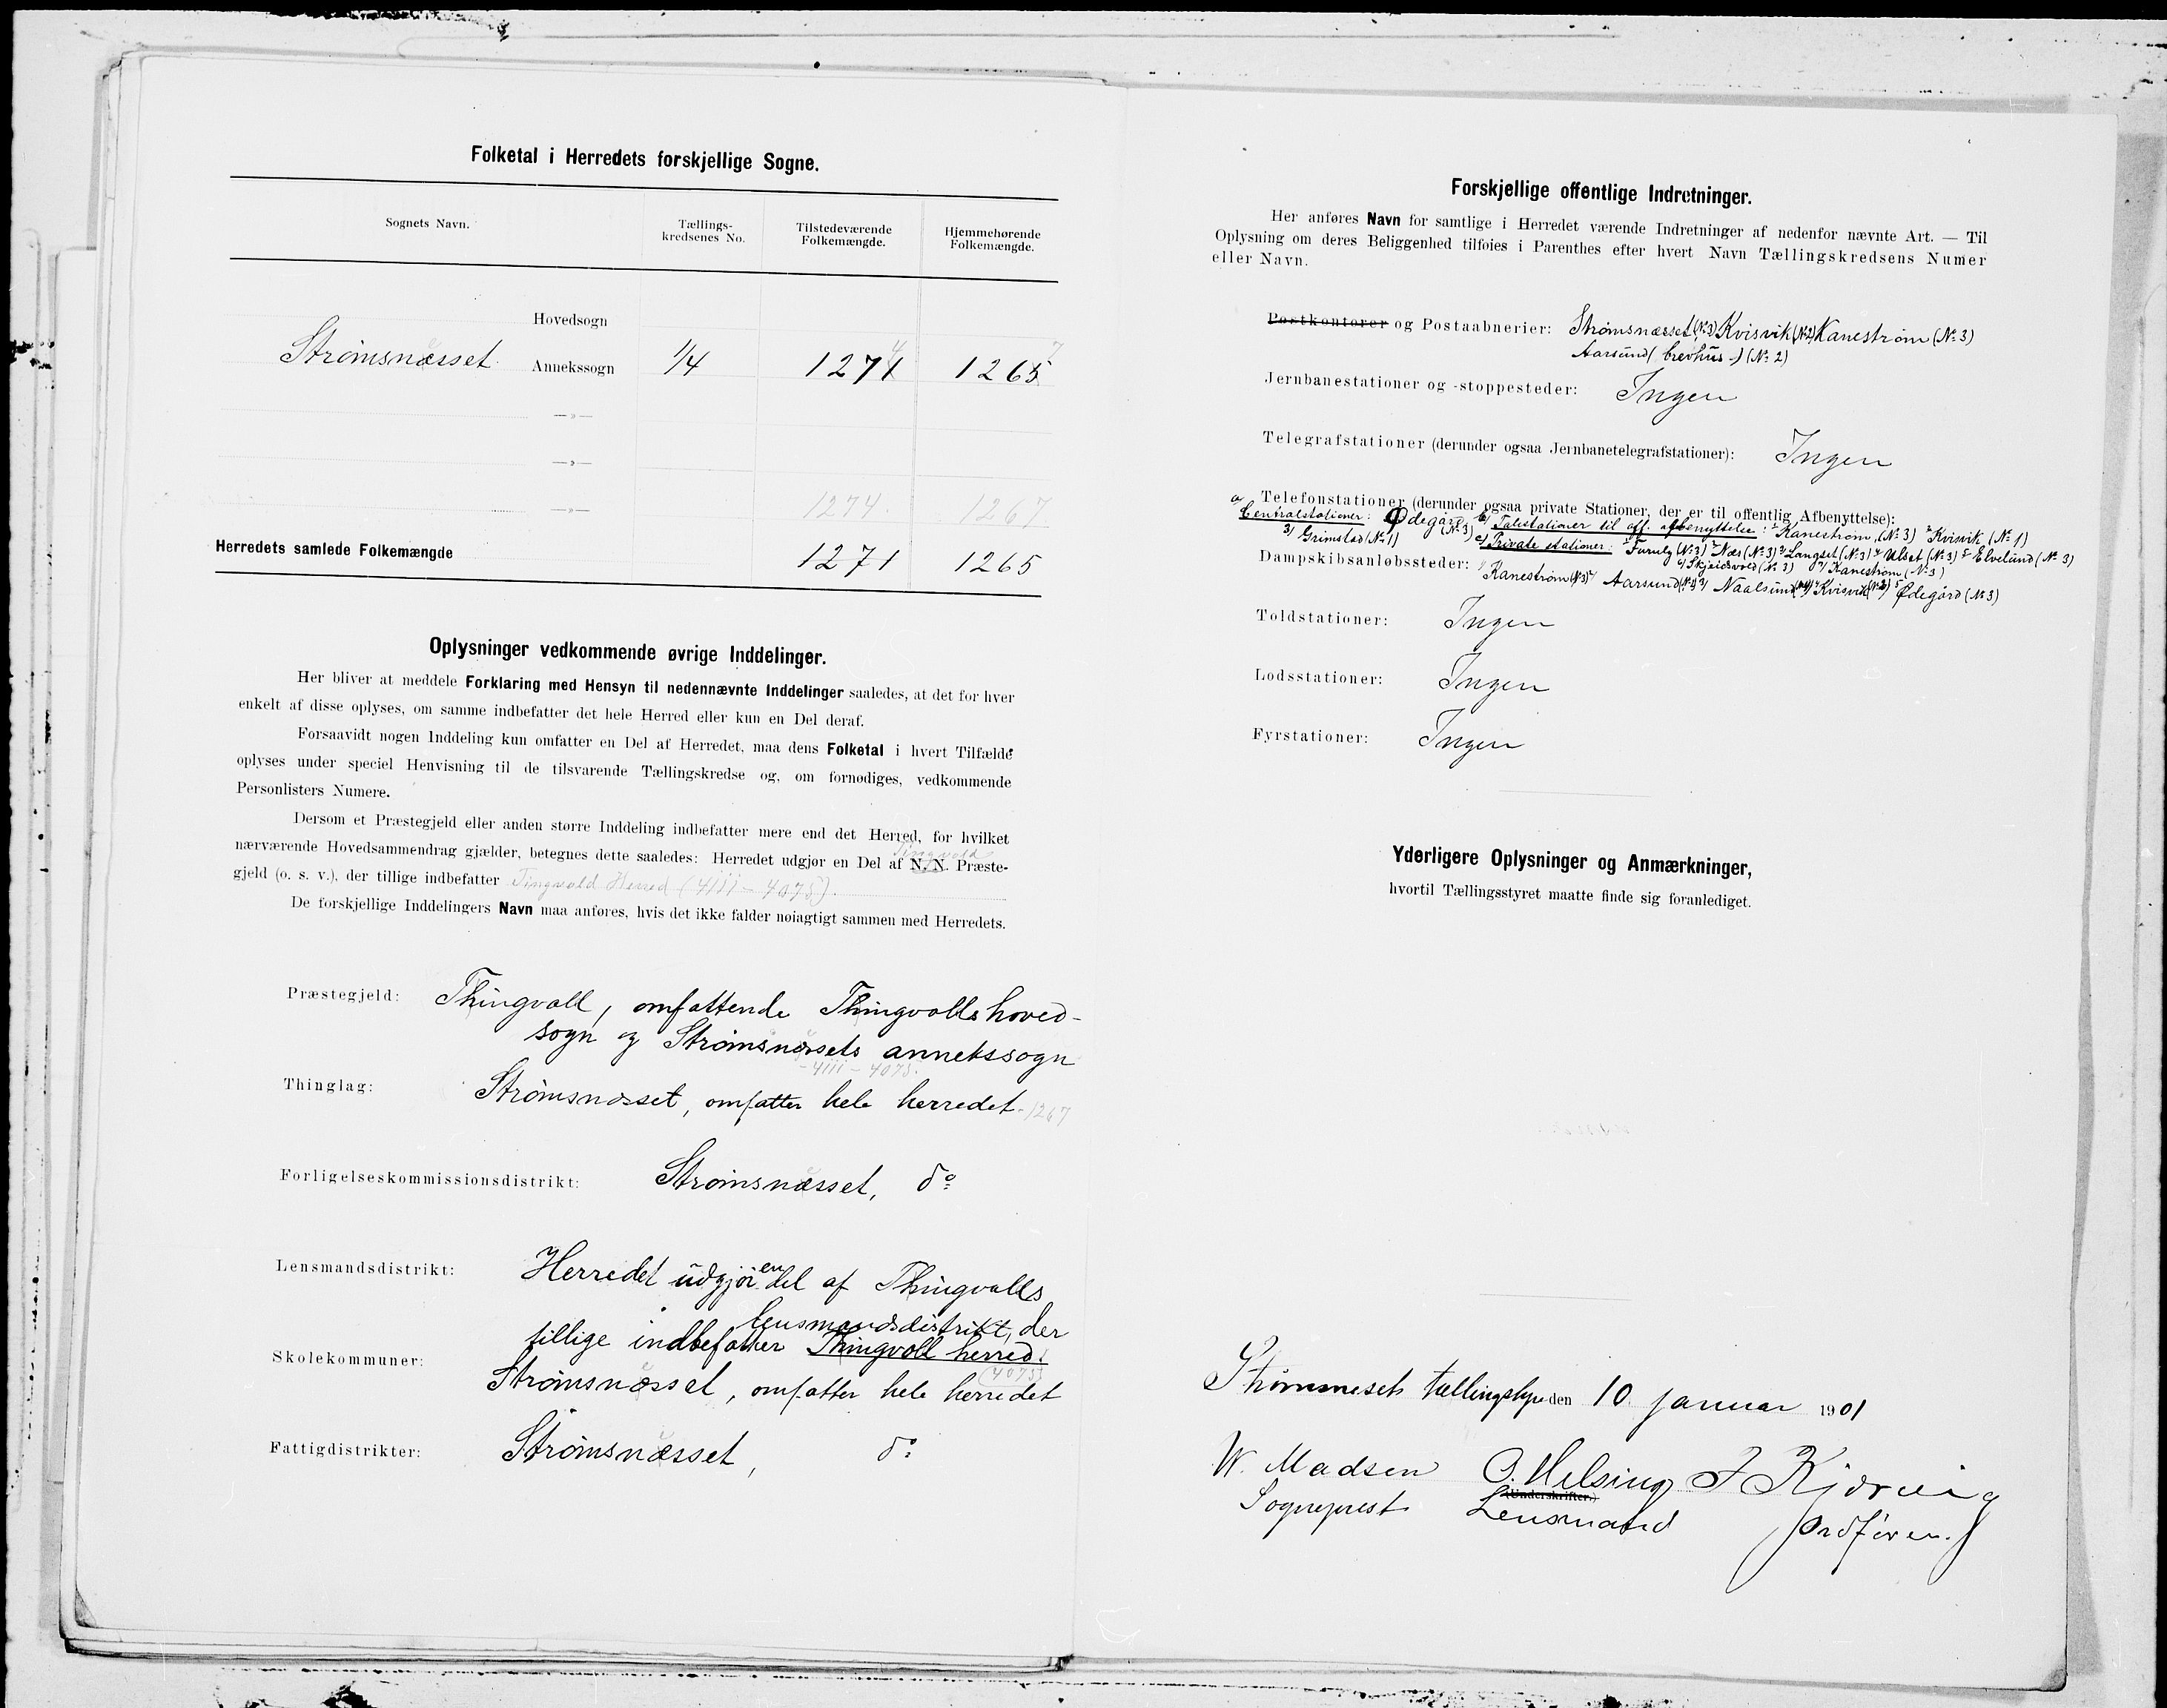 Folketal i Herredets forskjellige Sogne.
Sognets Navn. Tællings-kredsenes No. Tilstedeværende Folkemængde. Hjemmehørende Folkemængde.
Hovedsogn
Strømsnæsset Annekssogn 1/4 1271 4 1265 7
—»—
—»—
—»— 1274. 1267
Herredets samlede Folkemængde 1271 1265
Oplysninger vedkommende øvrige Inddelinger.
Her bliver at meddele Forklaring med Hensyn til nedennævnte Inddelinger saaledes, at det for hver
enkelt af disse oplyses, om samme indbefatter det hele Herred eller kun en Del deraf.
Forsaavidt nogen Inddeling kun omfatter en Del af Herredet, maa dens Folketal i hvert Tilfælde
oplyses under speciel Henvisning til de tilsvarende Tællingskredse og, om fornødiges, vedkommende
Personlisters Numere.
Dersom et Præstegjeld eller anden større Inddeling indbefatter mere end det Herred, for hvilket
nærværende Hovedsammendrag gjælder, betegnes dette saaledes: Herredet udgjør en Del af N. N. Præste-
Tingvold
gjeld (o. s. v.), der tillige indbefatter Tingvold Herred (4111 – 4075).
De forskjellige Inddelingers Navn maa anføres, hvis det ikke falder nøiagtigt sammen med Herredets.
Præstegjeld: Thingvoll, omfattende Thingvolls hoved-
sogn og Strømsnæssets annekssogn
- 4111 – 4075.
Thinglag: Strømsnæsset, omfatter hele herredet - 1267
Forligelseskommissionsdistrikt: Strømsnæsset, do
Lensmandsdistrikt: Herredet udgjør en del af Thingvolls
lensmandsdistrikt, der
tillige indbefatter Thingvoll herred.
(4075)
Skolekommuner: Strømsnæsset, omfatter hele herredet
Fattigdistrikter: Strømsnæsset, do
Forskjellige offentlige Indretninger.
Her anføres Navn for samtlige i Herredet værende Indretninger af nedenfor nævnte Art. — Til
Oplysning om deres Beliggenhed tilføies i Parenthes efter hvert Navn Tællingskredsens Numer
eller Navn.
Postkontorer og Postaabnerier: Strømsnæsset (No 3) Kvisvik (No 2) Kanestrøm (No 3)
Aarsund (brevhus) (No 2)
Jernbanestationer og -stoppesteder: Ingen
Telegrafstationer (derunder ogsaa Jernbanetelegrafstationer): Ingen
Telefonstationer (derunder ogsaa private Stationer, der er til offentlig Afbenyttelse):
a) Centralstationer: Ødegård (No 3) b) Talestationer til off. afbenyttelse: 1) Kanestrøm (No 3) 2) Kvisvik (No 1)
3) Grimstad (No 1) c) Private stationer: 1) Furuly (No 3) 2) Næs (No 3) 3) Langset (No 3) 4) Ulset (No 3) 5) Elvelund (No 3)
6) Skjeidsvold (No 3) 7) Kanestrøm (No 3)
Dampskibsanløbssteder: 1) Kanestrøm (No 3) 2) Aarsund 3) Naalsund 4) Kvisvik 5) Ødegård (No 3)
Toldstationer: Ingen
Lodsstationer: Ingen
Fyrstationer: Ingen
Yderligere Oplysninger og Anmærkninger,
hvortil Tællingsstyret maatte finde sig foranlediget.
Strømnesets tællingstyre den 10 januar 1901
W. Madsen O. Helsing J Kjørvig
(Underskrifter.)
Sogneprest Lensmand Ordfører.